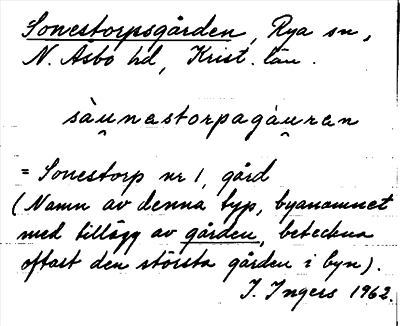 Sonestorpsgården, Rya sn,
N. Åsbo hd, Krist. län.
sàu̯nastorpagàu̯ran
= Sonestorp nr 1, gård
(Namn av denna typ, byanamnet
med tillägg av gården, beteckna
oftast den största gården i byn).
I. Ingers 1962.